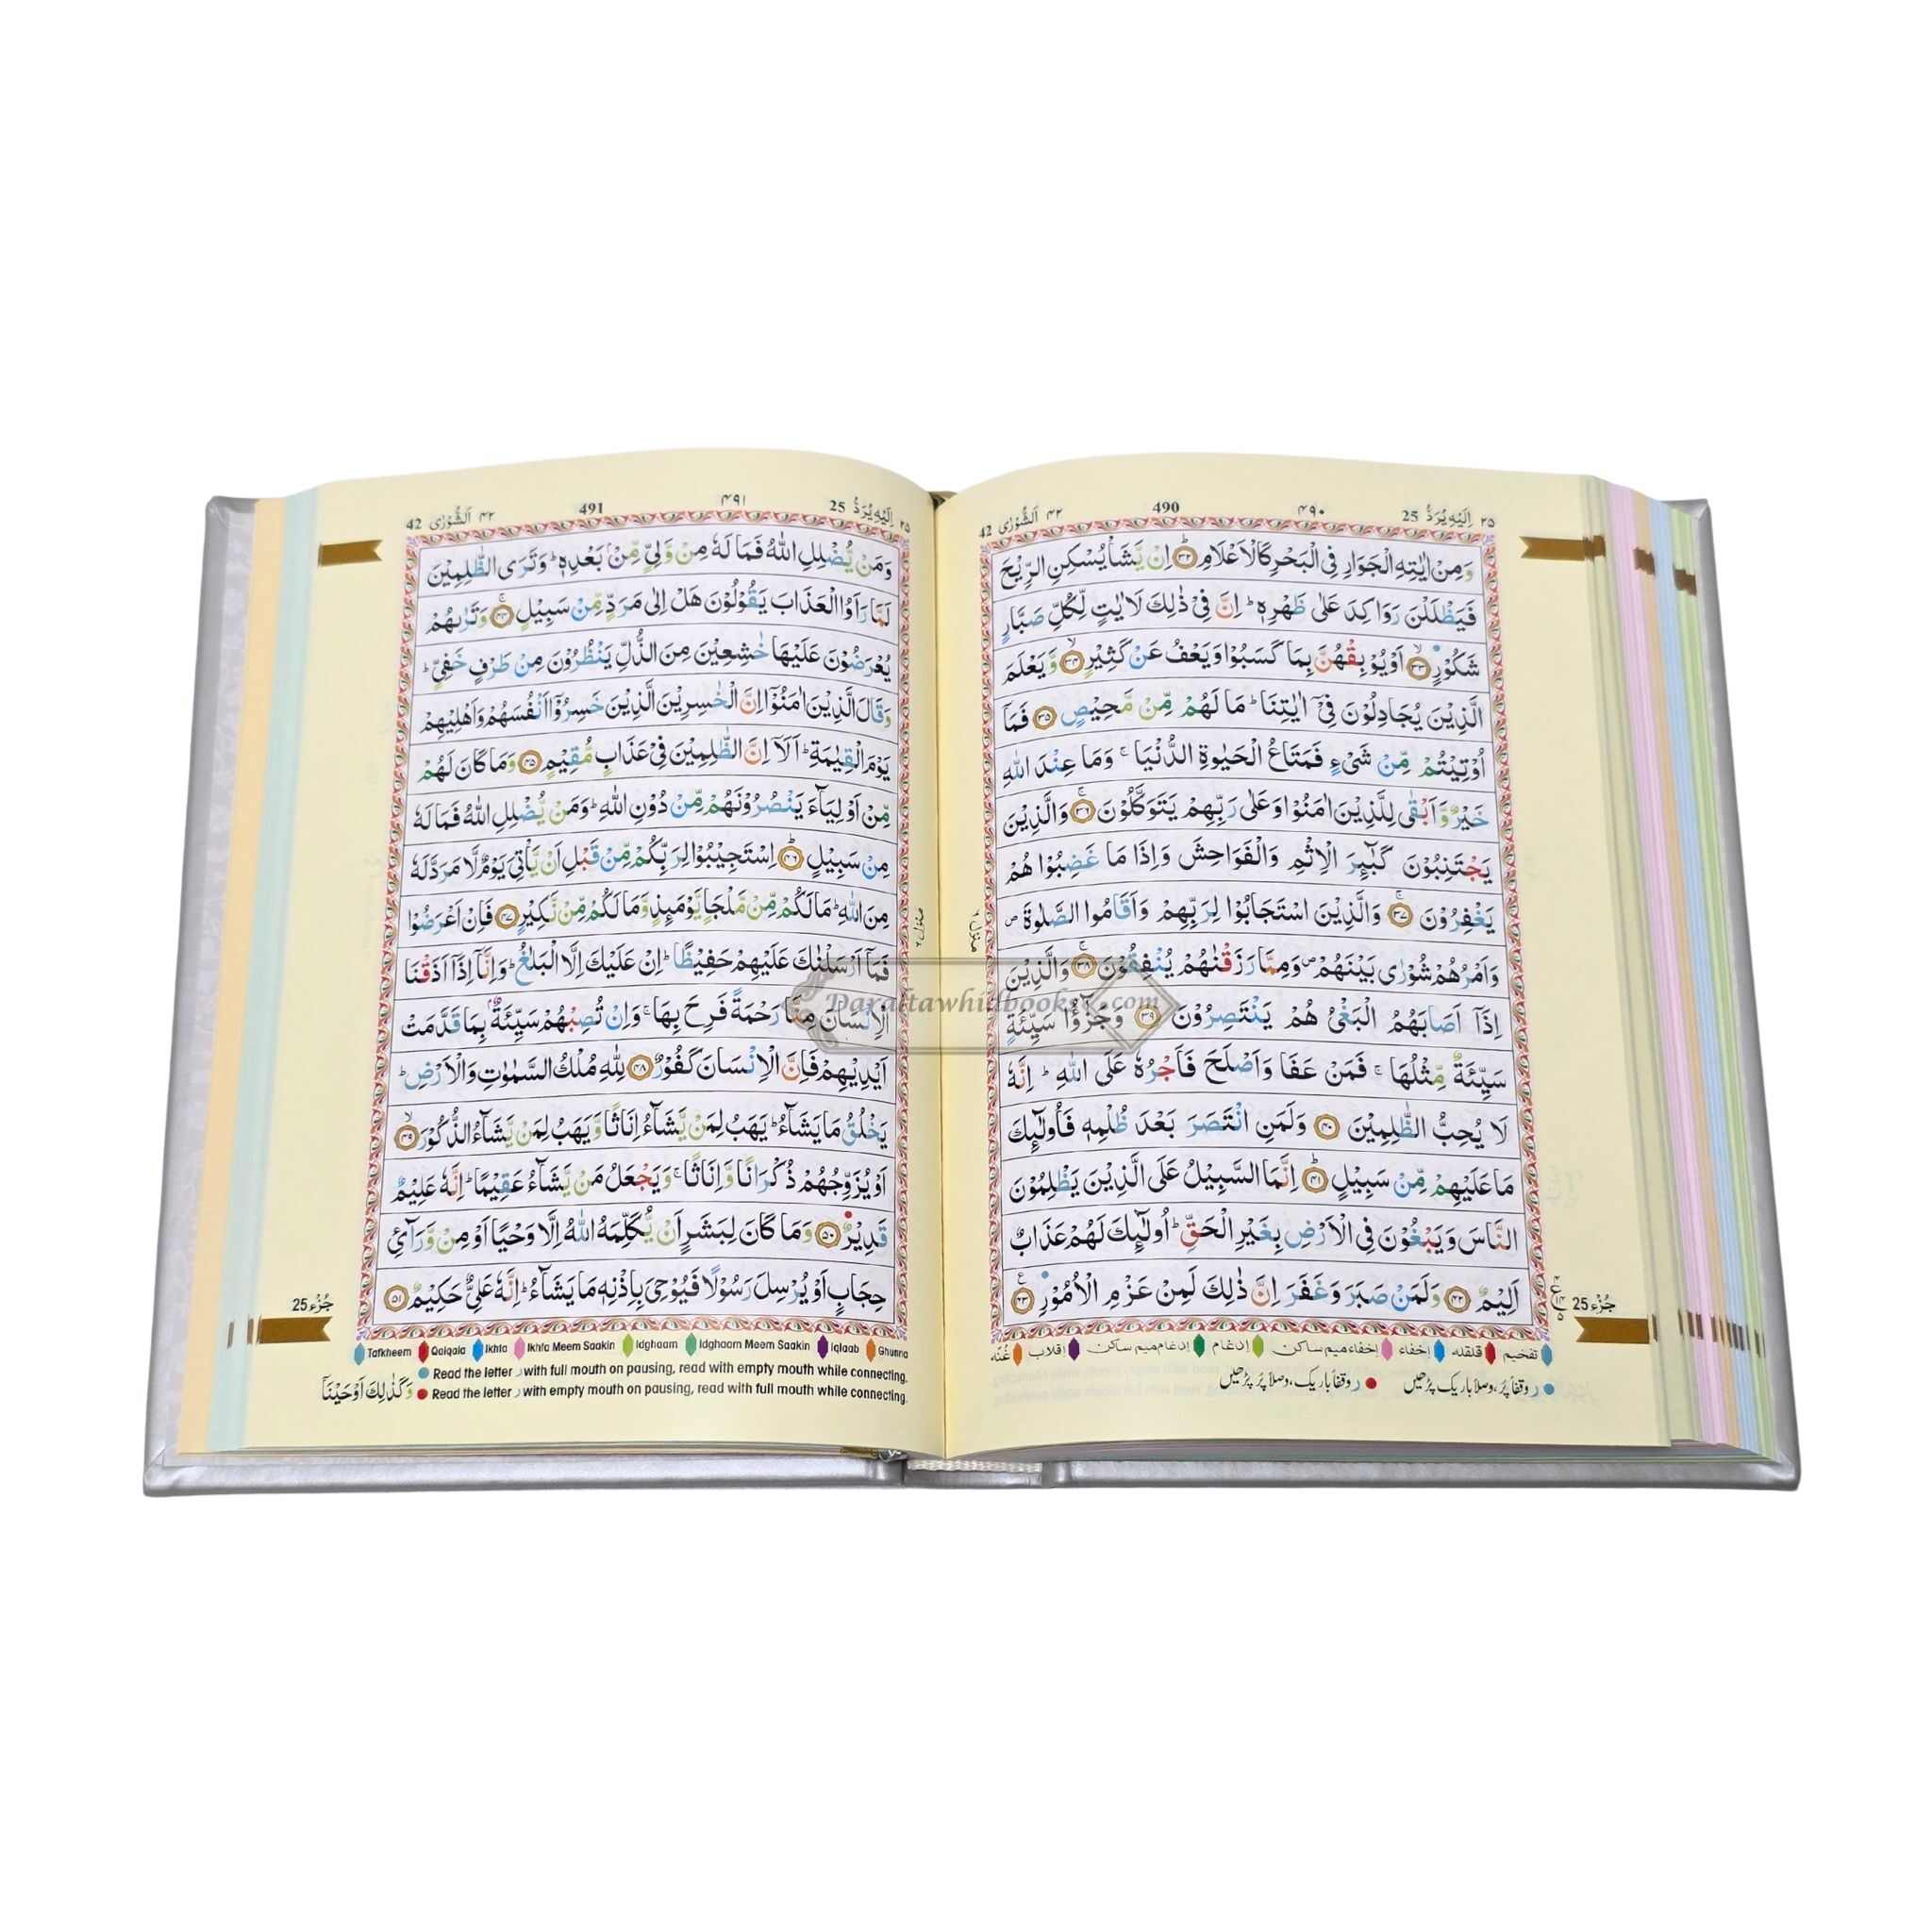 ٢٥ اِلَيۡهِ يُرَدُّ 25 ٤٩٠ 490 ٤٢ اَلشُّوۡرٰى 42
وَمِنۡ اٰيٰتِهِ الۡجَوَارِ فِى الۡبَحۡرِ كَالۡاَعۡلَامِ ؕ‏ ﴿۳۲﴾ اِنۡ يَّشَاۡ يُسۡكِنِ الرِّيۡحَ
فَيَظۡلَلۡنَ رَوَاكِدَ عَلٰى ظَهۡرِهٖ ؕ اِنَّ فِىۡ ذٰلِكَ لَاٰيٰتٍ لِّكُلِّ صَبَّارٍ
شَكُوۡرٍ ۙ‏ ﴿۳۳﴾ اَوۡ يُوۡبِقۡهُنَّ بِمَا كَسَبُوۡا وَيَعۡفُ عَنۡ كَثِيۡرٍ ۙ‏ ﴿۳۴﴾ وَّيَعۡلَمَ
الَّذِيۡنَ يُجَادِلُوۡنَ فِىۡۤ اٰيٰتِنَا ؕ مَا لَهُمۡ مِّنۡ مَّحِيۡصٍ‏ ﴿۳۵﴾ فَمَاۤ
اُوۡتِيۡتُمۡ مِّنۡ شَىۡءٍ فَمَتَاعُ الۡحَيٰوةِ الدُّنۡيَا ۚ وَمَا عِنۡدَ اللّٰهِ
خَيۡرٌ وَّاَبۡقٰى لِلَّذِيۡنَ اٰمَنُوۡا وَعَلٰى رَبِّهِمۡ يَتَوَكَّلُوۡنَ ۚ‏ ﴿۳۶﴾ وَالَّذِيۡنَ
يَجۡتَنِبُوۡنَ كَبٰٓٮِٕرَ الۡاِثۡمِ وَالۡفَوَاحِشَ وَاِذَا مَا غَضِبُوۡا هُمۡ
يَغۡفِرُوۡنَ ۚ‏ ﴿۳۷﴾ وَالَّذِيۡنَ اسۡتَجَابُوۡا لِرَبِّهِمۡ وَاَقَامُوا الصَّلٰوةَ ص
وَاَمۡرُهُمۡ شُوۡرٰى بَيۡنَهُمۡ ص وَمِمَّا رَزَقۡنٰهُمۡ يُنۡفِقُوۡنَ ۚ‏ ﴿۳۸﴾ وَالَّذِيۡنَ
اِذَاۤ اَصَابَهُمُ الۡبَغۡىُ هُمۡ يَنۡتَصِرُوۡنَ‏ ﴿۳۹﴾ وَجَزٰٓؤُا سَيِّئَةٍ
سَيِّئَةٌ مِّثۡلُهَا ۚ فَمَنۡ عَفَا وَاَصۡلَحَ فَاَجۡرُهٗ عَلَى اللّٰهِ ؕ اِنَّهٗ
لَا يُحِبُّ الظّٰلِمِيۡنَ‏ ﴿۴۰﴾ وَلَمَنِ انْتَصَرَ بَعۡدَ ظُلۡمِهٖ فَاُولٰٓٮِٕكَ
مَا عَلَيۡهِمۡ مِّنۡ سَبِيۡلٍ ؕ‏ ﴿۴۱﴾ اِنَّمَا السَّبِيۡلُ عَلَى الَّذِيۡنَ يَظۡلِمُوۡنَ
النَّاسَ وَيَبۡغُوۡنَ فِى الۡاَرۡضِ بِغَيۡرِ الۡحَقِّ ؕ اُولٰٓٮِٕكَ لَهُمۡ عَذَابٌ
اَلِيۡمٌ‏ ﴿۴۲﴾ وَلَمَنۡ صَبَرَ وَغَفَرَ اِنَّ ذٰلِكَ لَمِنۡ عَزۡمِ الۡاُمُوۡرِ‏ ﴿۴۳﴾
جُزْء 25
منزل ٦
تفخیم قلقلہ إخفاء إخفاء میم ساکن إدغام إدغام میم ساکن إقلاب غُنّہ
ر وقفاً پُر، وصلاً باریک پڑھیں ر وقفاً باریک، وصلاً پُر پڑھیں
٢٥ اِلَيۡهِ يُرَدُّ 25 ٤٩١ 491 ٤٢ اَلشُّوۡرٰى 42
وَمَنۡ يُّضۡلِلِ اللّٰهُ فَمَا لَهٗ مِنۡ وَّلِىٍّ مِّنۡۢ بَعۡدِهٖ ؕ وَتَرَى الظّٰلِمِيۡنَ
لَمَّا رَاَوُا الۡعَذَابَ يَقُوۡلُوۡنَ هَلۡ اِلٰى مَرَدٍّ مِّنۡ سَبِيۡلٍ ۚ‏ ﴿۴۴﴾ وَتَرٰٮهُمۡ
يُعۡرَضُوۡنَ عَلَيۡهَا خٰشِعِيۡنَ مِنَ الذُّلِّ يَنۡظُرُوۡنَ مِنۡ طَرۡفٍ خَفِىٍّ ؕ
وَقَالَ الَّذِيۡنَ اٰمَنُوۡۤا اِنَّ الۡخٰسِرِيۡنَ الَّذِيۡنَ خَسِرُوۡۤا اَنۡفُسَهُمۡ وَاَهۡلِيۡهِمۡ
يَوۡمَ الۡقِيٰمَةِ ؕ اَلَاۤ اِنَّ الظّٰلِمِيۡنَ فِىۡ عَذَابٍ مُّقِيۡمٍ‏ ﴿۴۵﴾ وَمَا كَانَ لَهُمۡ
مِّنۡ اَوۡلِيَآءَ يَنۡصُرُوۡنَهُمۡ مِّنۡ دُوۡنِ اللّٰهِ ؕ وَمَنۡ يُّضۡلِلِ اللّٰهُ فَمَا لَهٗ
مِنۡ سَبِيۡلٍ ؕ‏ ﴿۴۶﴾ اِسۡتَجِيۡبُوۡا لِرَبِّكُمۡ مِّنۡ قَبۡلِ اَنۡ يَّاۡتِىَ يَوۡمٌ لَّا مَرَدَّ لَهٗ
مِنَ اللّٰهِ ؕ مَا لَكُمۡ مِّنۡ مَّلۡجَاٍ يَّوۡمَٮِٕذٍ وَّمَا لَكُمۡ مِّنۡ نَّكِيۡرٍ‏ ﴿۴۷﴾ فَاِنۡ اَعۡرَضُوۡا
فَمَاۤ اَرۡسَلۡنٰكَ عَلَيۡهِمۡ حَفِيۡظًا ؕ اِنۡ عَلَيۡكَ اِلَّا الۡبَلٰغُ ؕ وَاِنَّاۤ اِذَاۤ اَذَقۡنَا
الۡاِنۡسَانَ مِنَّا رَحۡمَةً فَرِحَ بِهَا ۚ وَاِنۡ تُصِبۡهُمۡ سَيِّئَةٌۢ بِمَا قَدَّمَتۡ
اَيۡدِيۡهِمۡ فَاِنَّ الۡاِنۡسَانَ كَفُوۡرٌ‏ ﴿۴۸﴾ لِلّٰهِ مُلۡكُ السَّمٰوٰتِ وَالۡاَرۡضِ ؕ
يَخۡلُقُ مَا يَشَآءُ ؕ يَهَبُ لِمَنۡ يَّشَآءُ اِنَاثًا وَّيَهَبُ لِمَنۡ يَّشَآءُ الذُّكُوۡرَ ۙ‏ ﴿۴۹﴾
اَوۡ يُزَوِّجُهُمۡ ذُكۡرَانًا وَّاِنَاثًا ۚ وَيَجۡعَلُ مَنۡ يَّشَآءُ عَقِيۡمًا ؕ اِنَّهٗ عَلِيۡمٌ
قَدِيۡرٌ‏ ﴿۵۰﴾ وَمَا كَانَ لِبَشَرٍ اَنۡ يُّكَلِّمَهُ اللّٰهُ اِلَّا وَحۡيًا اَوۡ مِنۡ وَّرَآىِٕ
حِجَابٍ اَوۡ يُرۡسِلَ رَسُوۡلًا فَيُوۡحِىَ بِاِذۡنِهٖ مَا يَشَآءُ ؕ اِنَّهٗ عَلِىٌّ حَكِيۡمٌ‏ ﴿۵۱﴾
جُزْء 25
منزل ٦
Tafkheem Qalqala Ikhfa Ikhfa Meem Saakin Idghaam Idghaam Meem Saakin Iqlaab Ghunna
Read the letter ر with full mouth on pausing, read with empty mouth while connecting.
Read the letter ر with empty mouth on pausing, read with full mouth while connecting.
وَكَذٰلِكَ اَوۡحَيۡنَاۤ
Daraltawhidbooks.com